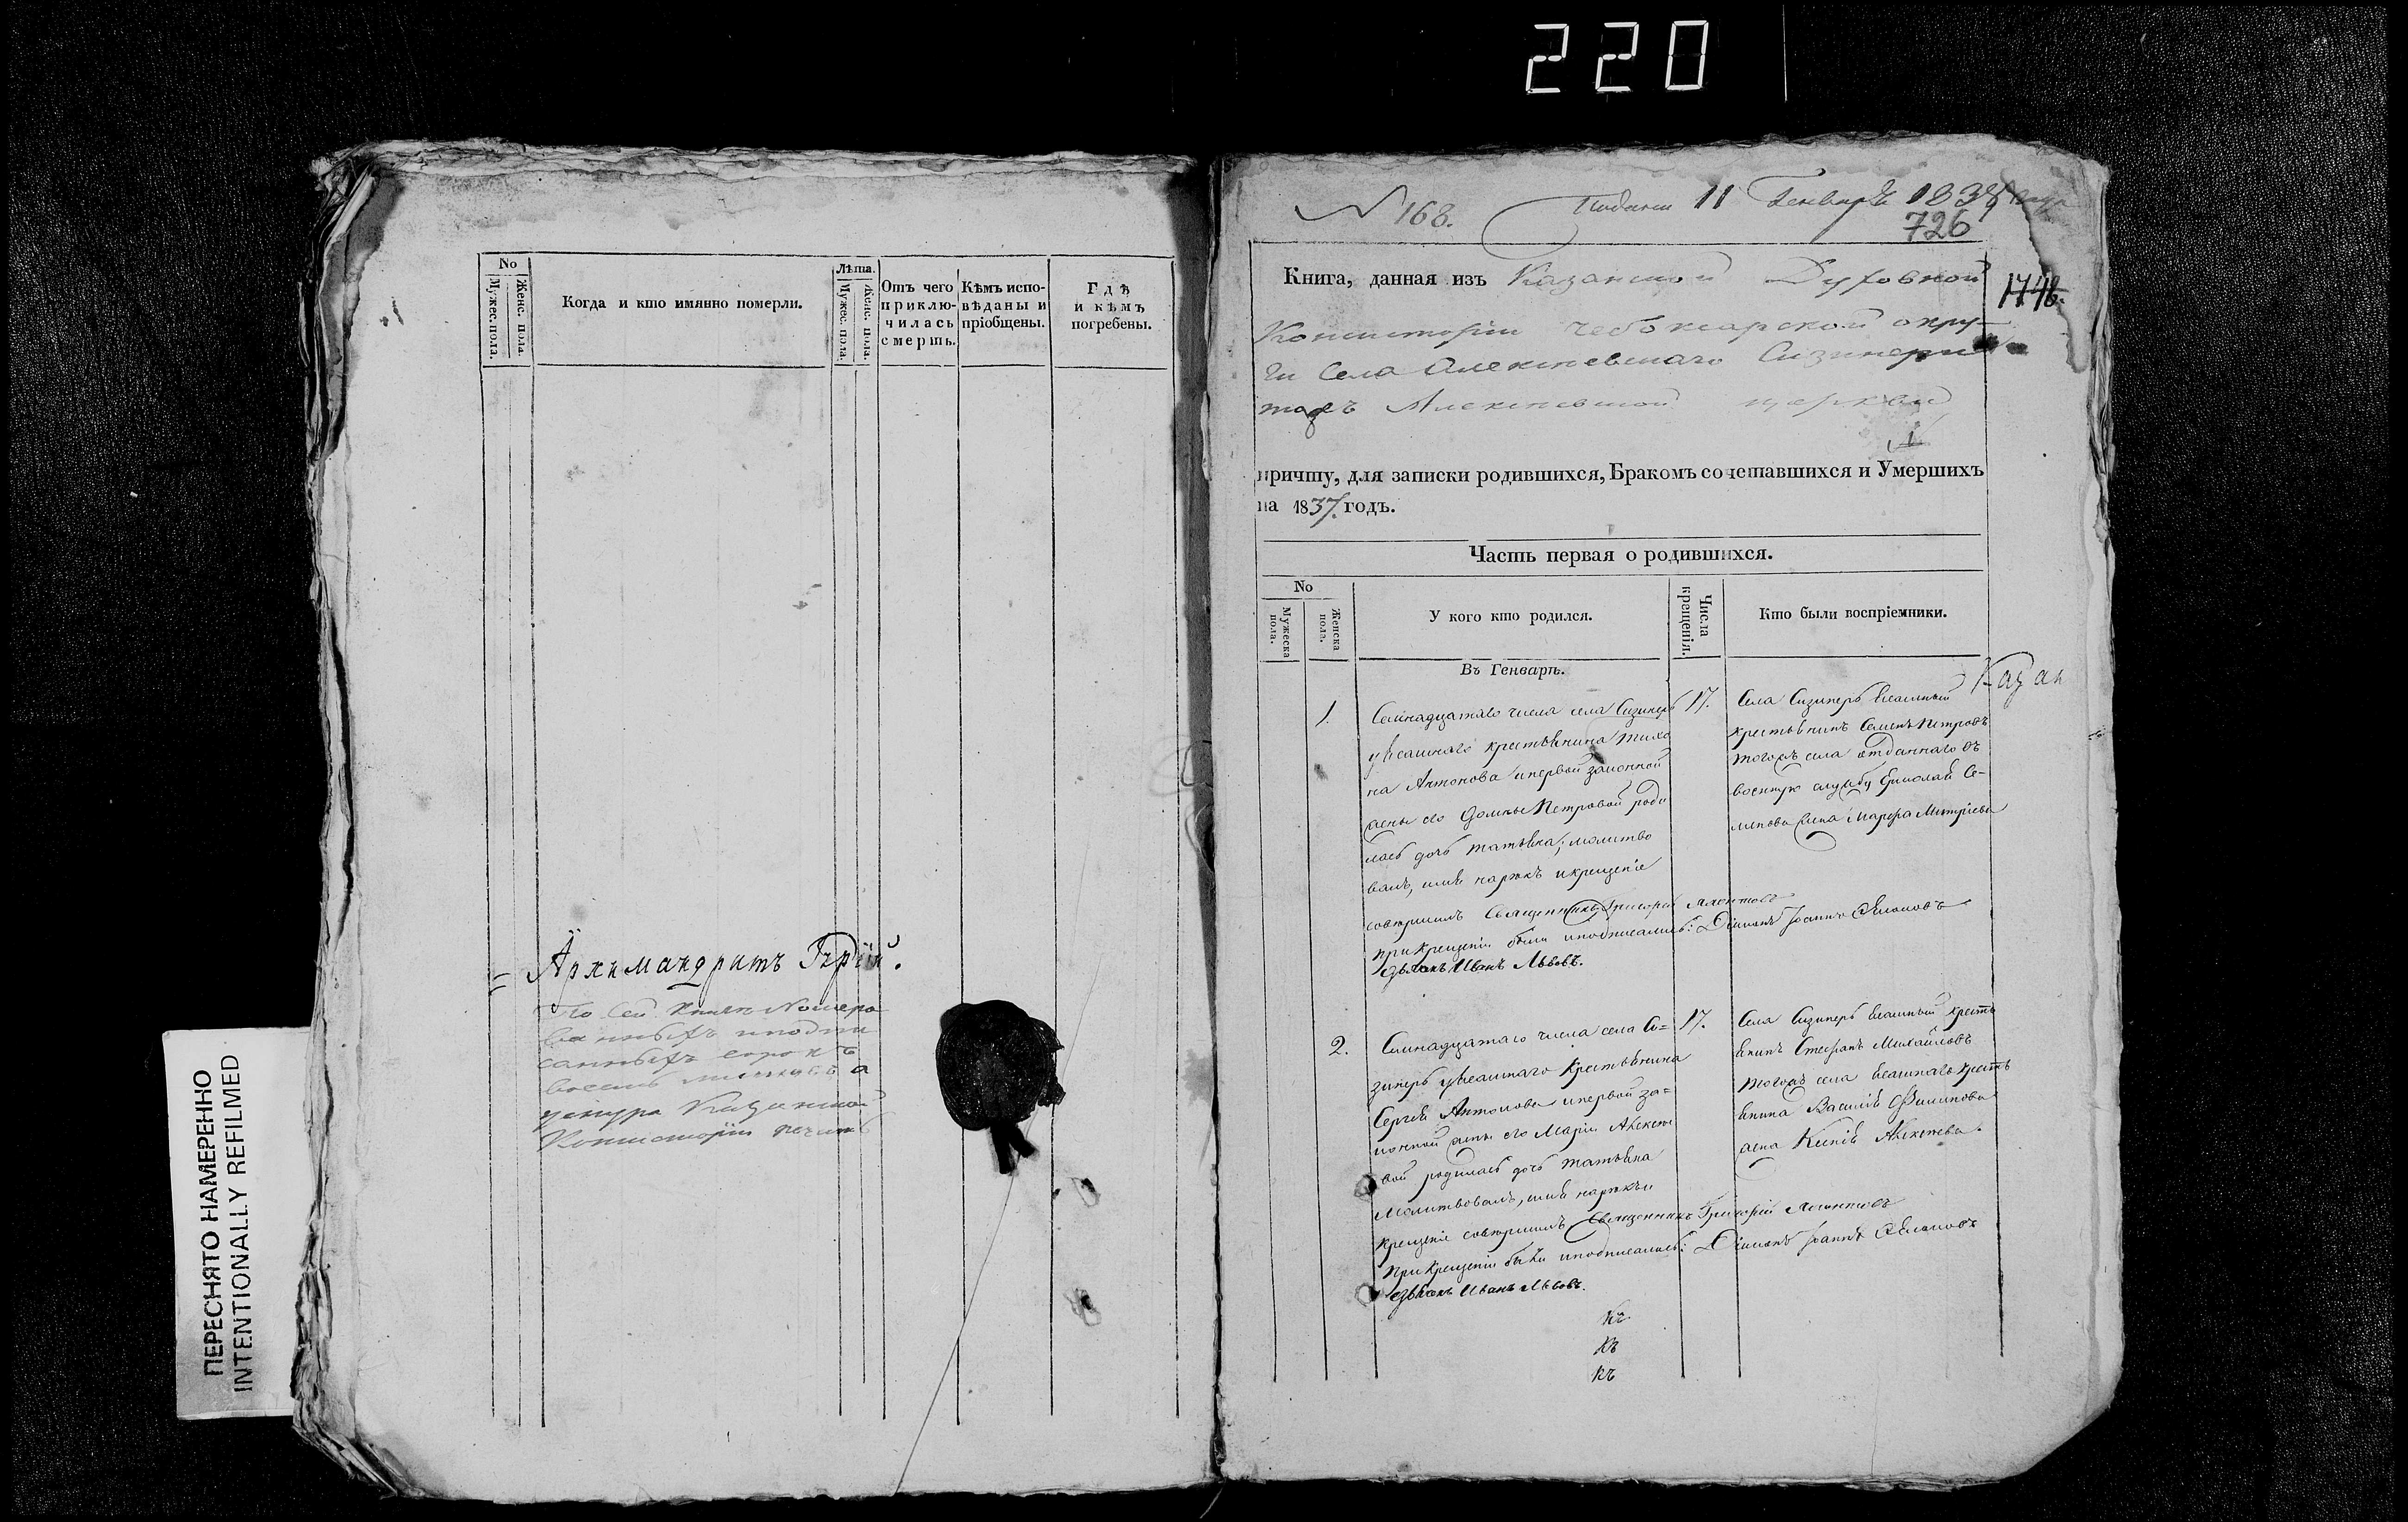 220
No
Мужес. пола.
Женс. пола.
Когда и кто имянно померли.
Лѣта.
Мужес. пола.
Женс. пола.
Отъ чего
приклю-
чилась
смерть.
Кѣмъ испо-
вѣданы и
пріобщены.
Гдѣ
и кѣмъ
погребены.
Архимандритъ Гурій.
По сей книгѣ Номеро
ванныхъ и подпи
санныхъ сорокъ
восемь листовъ а
у шнура Казанской
Консисторіи печать
ПЕРЕСНЯТО НАМЕРЕННО
INTENTIONALLY REFILMED
N 168.
Подана 11 Генваря 1838
726
1748.
Книга, данная изъ Казанской Духовной
Консисторіи Чебоксарской окру-
ги села Алексѣевскаго Сизинеръ
тожъ Алексѣевской церкви
причту, для записки родившихся, Бракомъ сочетавшихся и Умершихъ
на 1837. годъ.
Часть первая о родившихся.
No
Мужеска
пола.
Женска
пола.
У кого кто родился.
Числа
крещенія.
Кто были воспріемники.
Въ Генварѣ.
Казан
1.
Семнадцатаго числа села Сизинеръ
у ясашнаго крестьянина Тихо
на Антонова и первой законной
жены его Домны Петровой роди
лась дочь Татьяна; молитво
валъ, имя нарѣкъ и крещеніе
совѣршилъ Священникъ Григорій Леонтовъ
При крещеніи были и подписались: Діаконъ Іоаннъ
Дьячокъ Иванъ Львовъ.
17.
Села Сизинеръ ясашный
крестьянинъ Семенъ Петровъ
тогожъ села отданнаго въ
военную службу Ермолая Се-
менова жена Марфа Митріева
2.
Семнадцатаго числа села Си=
зинеръ у ясашнаго крестьянина
Сергѣя Антонова и первой за=
конной жены его Маріи Алексѣе
вой родилась дочь Татьяна
Молитвовалъ, имя нарѣкъ и
крещеніе совѣршилъ Священникъ Григорій Леонтовъ
При крещеніи были и подписались: Діаконъ Іоаннъ
Дьячокъ Иванъ Львовъ.
17.
Села Сизинеръ ясашный кресть
янинъ Стефанъ Михайловъ
тогожъ села ясашнаго кресть
янина Василія Филипова
жена Ксенія Алексѣева.
Къ
Къ
Къ